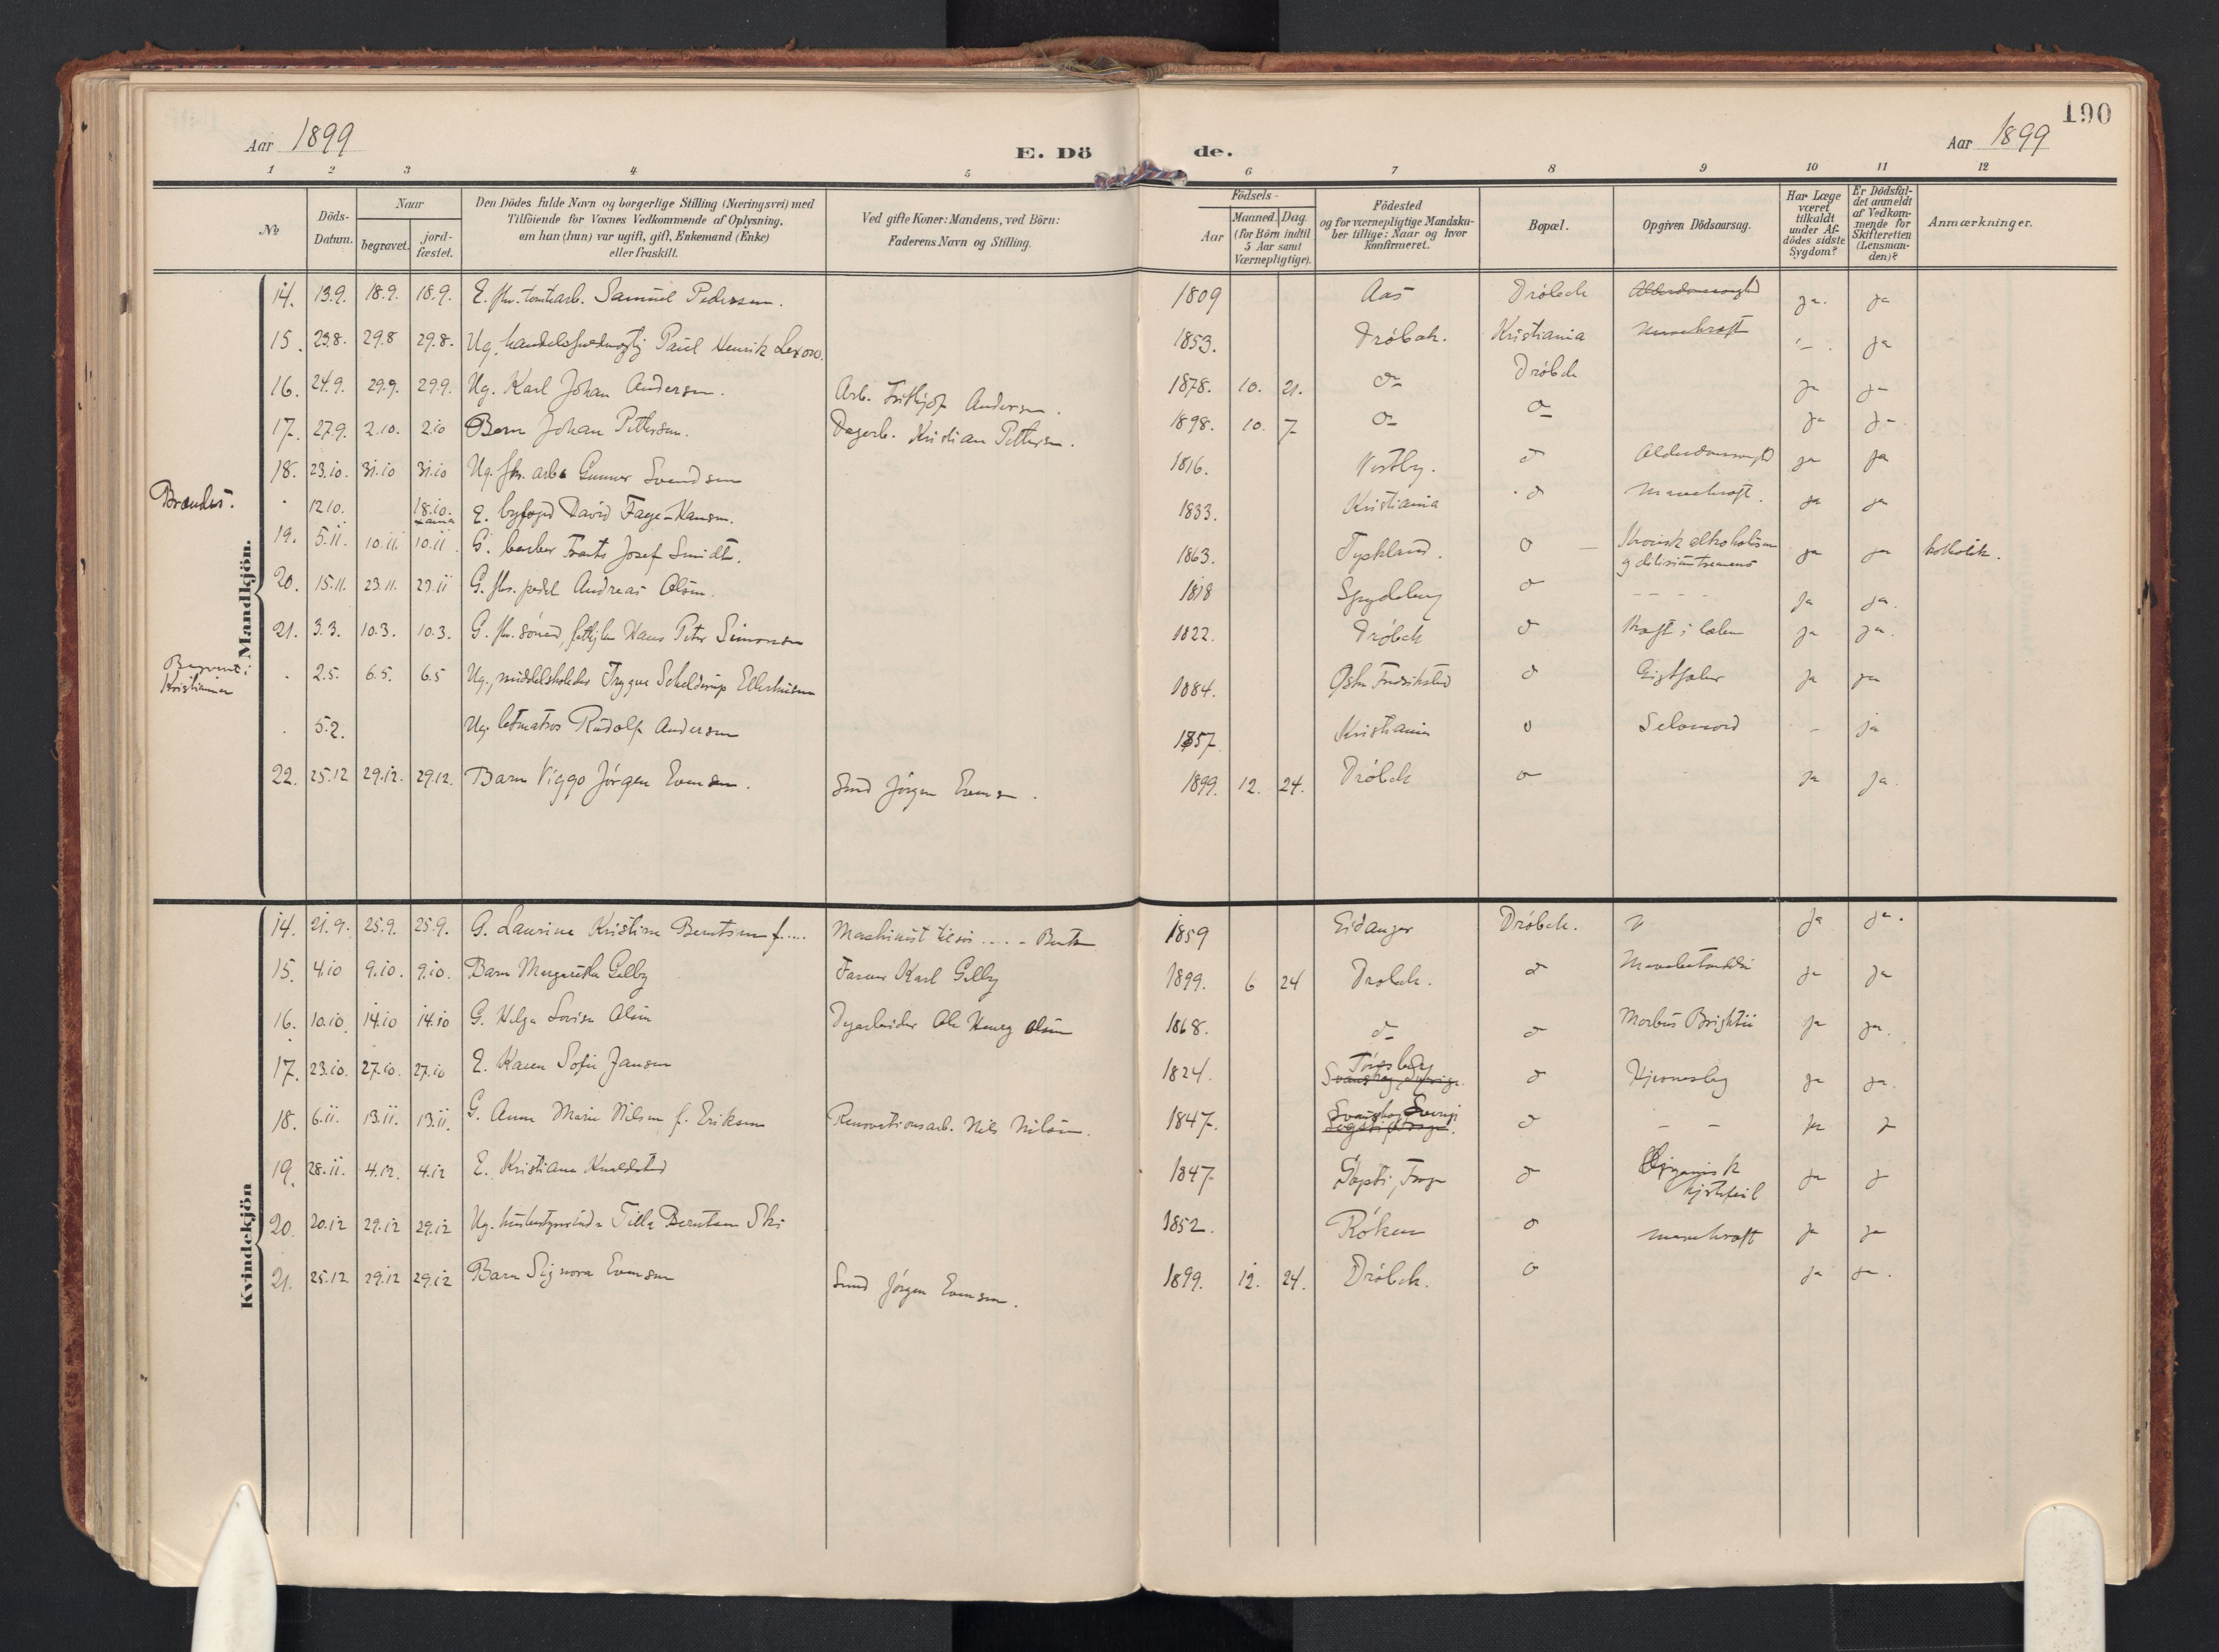 190
Aar 1899
E. Dö de.
Aar 1899
1 2 3 4 5 6 7 8 9 10 11 12
No
Döds-Datum.
Naar
begravet.
jord-fæstet.
Den Dödes fulde Navn og borgerlige Stilling (Næringsvei) med
Tilföiende for Voxnes Vedkommende af Oplysning,
om han (hun) var ugift, gift, Enkemand (Enke)
eller fraskilt.
Ved gifte Koner: Mandens, ved Börn:
Faderens Navn og Stilling.
Födsels-
Aar
Maaned. Dag.
(for Börn indtil
5 Aar samt
Værnepligtige).
Födested
og for værnepligtige Mandska-
ber tillige: Naar og hvor
konfirmeret.
Bopæl.
Opgiven Dödsaarsag.
Har Læge
været
tilkaldt
under Af-
dödes sidste
Sygdom?
Er Dödsfal-
det anmeldt
af Vedkom-
mende for
Skifteretten
(Lensman-
den)?
Anmærkninger.
Mandkjön.
14. 13.9. 18.9. 18.9. E. fhv. tomtearb. Samuel Pedersen. 1809 Aas Dröbak Alderdomssvaghed ja. ja
15. 23.8. 29.8 29.8. Ug. handelsfuldmægtig Paul Henrik Lexow. 1853. Dröbak. Kristiania Mavekræft - . ja
16. 24.9. 29.9. 29.9. Ug. Karl Johan Andersen. Arb. Frithjof Andersen. 1878. 10. 21. do Dröbak ja ja
17. 27.9. 2.10. 2.10 Barn Johan Pettersen. Dagarb. Kristian Pettersen. 1898. 10. 7. do do ja ja.
18. 23.10. 31.10 31.10 Ug. fhv. arb. Gunner Svendsen 1816. Vestby. do Alderdomssvaghed ja ja
Brændes. 12.10. 18.10. E. byfoged David Faye-Hansen. 1833. Kristiania do Mavekræft. ja ja
19. 5.11. 10.11. 10.11. G. barber Frants Josef Smidt. 1863. Tyskland. do Kronisk alkoholisme
og delirium tremens ja ja katholik.
20. 15.11. 23.11. 23.11 G. fhv. pedel Andreas Olsen. 1818 Spydeberg do - - - - ja ja.
21. 3.3. 10.3. 10.3. G. fhv. sömd, Hans Peter Simonsen 1822. Dröbak do Kræft i læben ja ja.
Begravet i
Kristiania 2.5. 6.5. 6.5 Ug., middelskoleelev Trygve Schelderup Ellerhusen 1884. Östre Fredrikstad do Gigtfeber ja ja
5.2. Ug. letmatros Rudolf Andersen 1857. Kristiania do Selvmord - ja
22. 25.12 29.12. 29.12. Barn Viggo Jörgen Evensen. Smed Jörgen Evensen. 1899. 12. 24. Dröbak do ja ja.
Kvindekjön
14. 21.9. 25.9. 25.9. G. Laurine Kristine Berntsen f..... Maskinist ..... Berntsen 1859 Eidanger Dröbak. ja ja.
15. 4.10 9.10. 9.10. Barn Margarethe Gelby Farver Karl Gelby 1899. 6 24 Dröbak. do ja ja
16. 10.10. 14.10 14.10 G. Helga Lovise Olsen Dagarbeider Ole Henry Olsen 1868. do do Morbus Brightii ja ja.
17. 23.10. 27.10. 27.10 E. Karen Sofie Jansen 1824. Tönsberg
Svanskog, Sverige. do Hjerneslag ja ja.
18. 6.11. 13.11. 13.11. G. Anne Marie Nilsen f. Eriksen Renovationsarb. Nils Nilsen. 1847. Svanskog Sverige do - - ja ja
19. 28.11. 4.12. 4.12 E. Kristiane 1847 do Organisk
hjertefeil ja ja
20. 20.12 29.12 29.12 Ug. husbestyrerinde Tilla Berntsen Ski 1852. Röken do mavekræft ja ja
21. 25.12 29.12 29.12 Barn Signora Evensen Smed Jörgen Evensen. 1899. 12. 24. Dröbak. do ja ja.